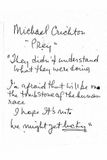 Michael Crichton
"Prey"
"They didn't understand
what they were doing
I'm afraid that will be
on the tombstone of the human
race
I hope it's not
We might get lucky"